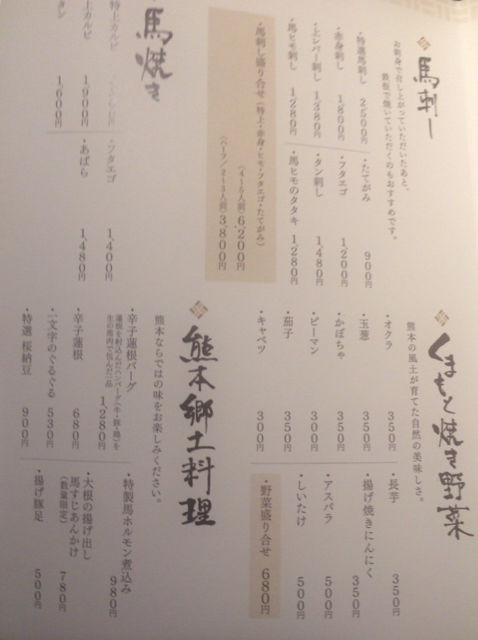 馬刺し
お刺身で召し上がっていただいたあと、
鉄板で焼いていただくのもおすすめです。
・特選馬刺し 2,500円
・赤身刺し 1,800円
・上レバー刺し 1,380円
・馬ヒモ刺し 1,280円
・たてがみ 900円
・フタエゴ 1,200円
・タン刺し 1,480円
・馬ヒモのタタキ 1,280円
・馬刺し盛り合せ（特上・赤身・ヒモ・フタエゴ・たてがみ）
（4〜5人前）6,200円
（ハーフ／2〜3人前）3,800円
馬焼き
特上カルビ
上カルビ 1,900円
タン 1,600円
・フタエゴ 1,400円
・あばら 1,480円
くまもと焼き野菜
熊本の風土が育てた自然の美味しさ。
・オクラ 350円
・玉葱 350円
・かぼちゃ 350円
・ピーマン 300円
・茄子 350円
・キャベツ 300円
・長芋 350円
・揚げ焼きにんにく 350円
・アスパラ 500円
・しいたけ 500円
・野菜盛り合せ 680円
熊本郷土料理
熊本ならではの味をお楽しみください。
・辛子蓮根バーグ
蓮根を射込んだハンバーグ（牛・豚・鶏）を
生の馬肉で包んだ一品 1,280円
・辛子蓮根 680円
・一文字のぐるぐる 530円
・特選 桜納豆 900円
・特製馬ホルモン煮込み 980円
・大根の揚げ出し
馬すじあんかけ
（数量限定） 780円
・揚げ豚足 500円